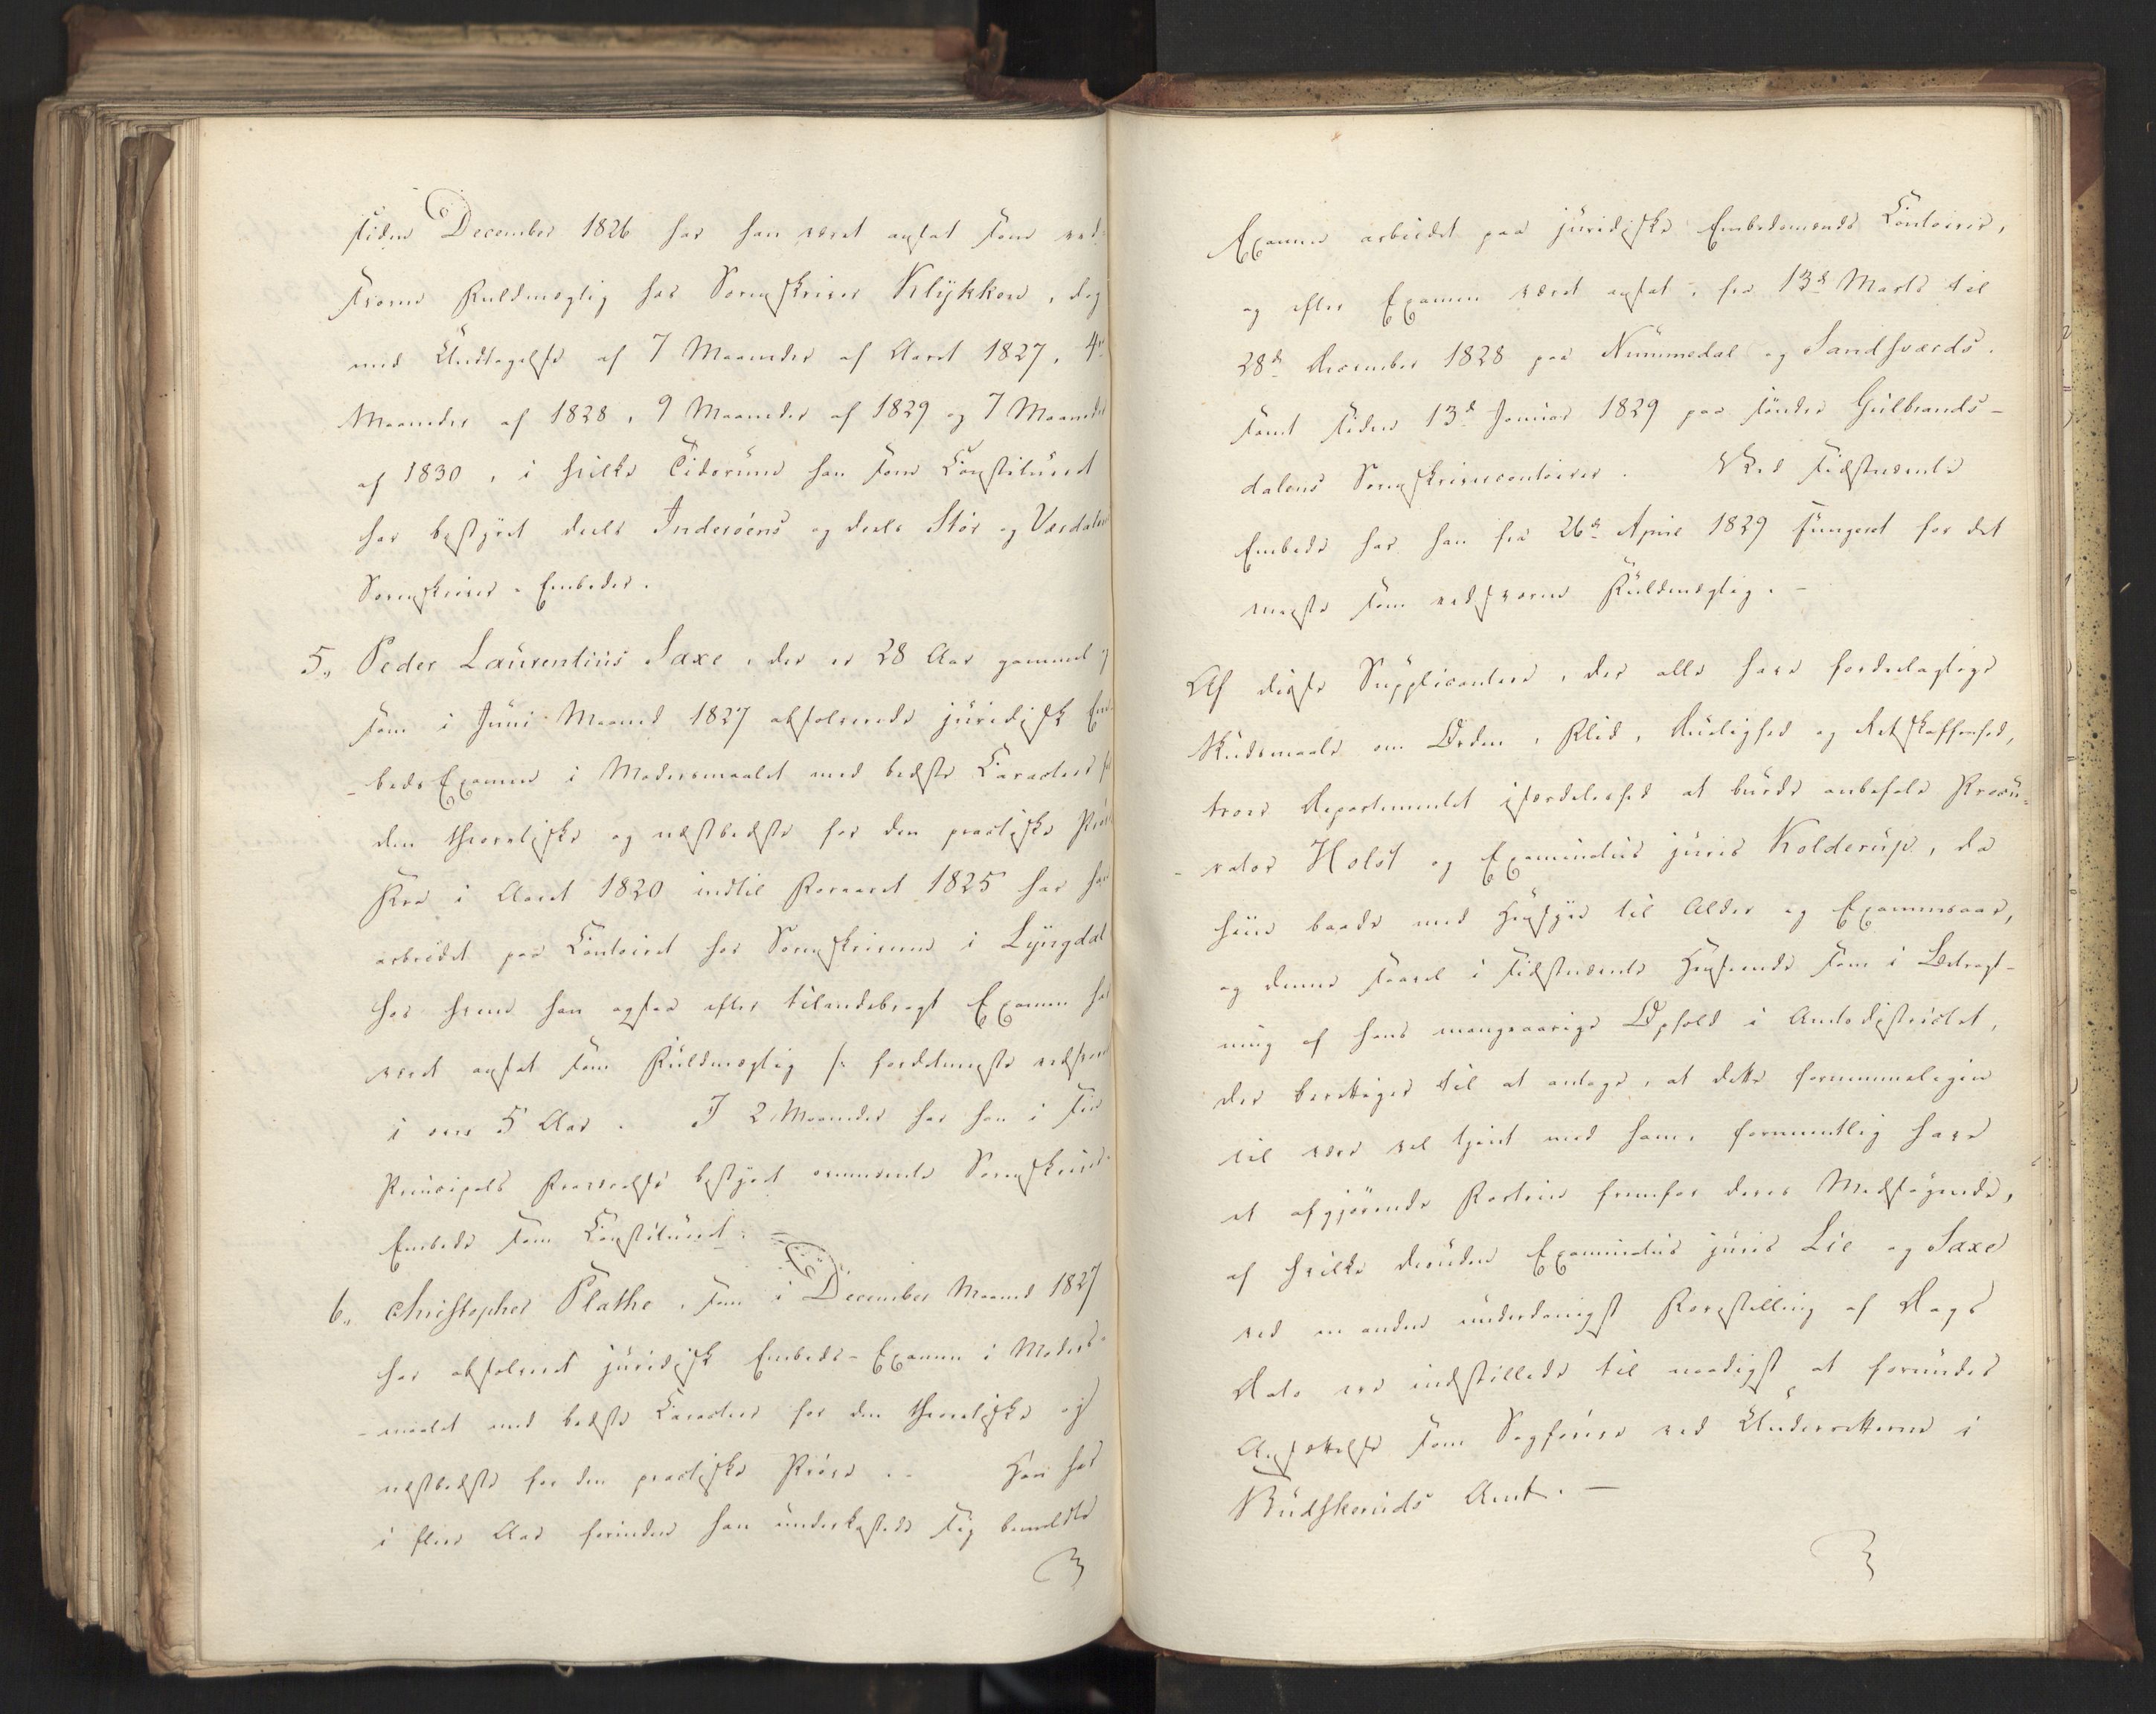 siden December 1826 har han været ansat som ed-
svoren Fuldmægtig hos Sorenskriver Klykken, dog
med Undtagelse af 7 Maaneder af Aaret 1827, 4
Maaneder af 1828, 9 Maaneder af 1829 og 7 Maaneder
af 1830, i hvilke Tidsrum han som Constitueret
har bestyret deels Inderöens og deels Stör og Værdalens
Sorenskriver-Embeder.
5, Peder Laurentius Saxe, der er 28 Aar gammel og
som i Juni Maaned 1827 absolverede juridisk Em-
-beds Examen i Modersmaalet med bedste Caracteer for
den theoretiske og næstbedste for den practiske Pröve
Fra i Aaret 1820 indtil Foraaret 1825 har han
arbeidet paa Contoiret hos Sorenskriveren i Lyngdal
hos hvem han ogsaa efter tilendebragt Examen har
været ansat som Fuldmægtig /: fordetmeste edsvoren
i over 5 Aar. I 2 Maaneder har han i sin
Principals Fraværelse bestyret ommeldte Sorenskriver-
Embede som Constitueret.
6, Christopher Plathe, som i December Maaned 1827
har absolveret juridisk Embeds-Examen i Moders-
-maalet med bedste Caracteer for den theoretiske og
næstbedste for den practiske Pröve. Han har
i flere Aar forinden han underkastede sig bemeldte
Examen arbeidet paa juridiske Embedsmænds Contoirer,
og efter Examen været ansat, fra 13de Marts til
28de December 1828 paa Nummedal og Sandsværds.
samt siden 13de Januar 1829 paa söndre Gulbrands-
dalens Sorenskrivercontoirer. Ved sidstnævnte
Embede har han fra 26de April 1829 fungeret for det
meste som edsvoren Fuldmægtig. -
Af disse Supplicantere, der alle have fordeelagtige
Skudsmaale om Orden, Flid, Duelighed og Retskaffenhed,
troer Departementet iærdeleshed at burde anbefale Procu-
-rator Holst og Examinatus juris Kolderup, da
hiin baade med Hensyn til Alder og Examensaar,
og denne saavel i sidstnævnte Henseende som i Betragt-
ning af hans mangeaarige Ophold i Amtsdistrictet,
der berettiger til at antage, at dette formeenligen
vil være vel tjent med ham, formeentlig have
et afgjörende Fortrin fremfor deres Medsögende,
af hvilke desuden Examinatus juris Lie og Saxe
ved en anden underdanigst Forestilling af Dags
Dato ere indstillede til naadigst at forundes
Ansættelse som Sagförere ved Underretterne i
Budskeruds Amt. -